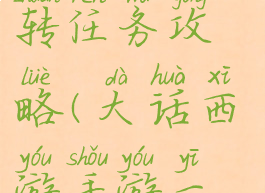 zhuǎn rèn wù gōng
转任务攻
lüè dà huà xī
略(大话西
yóu shǒu yóu yī
游手游一